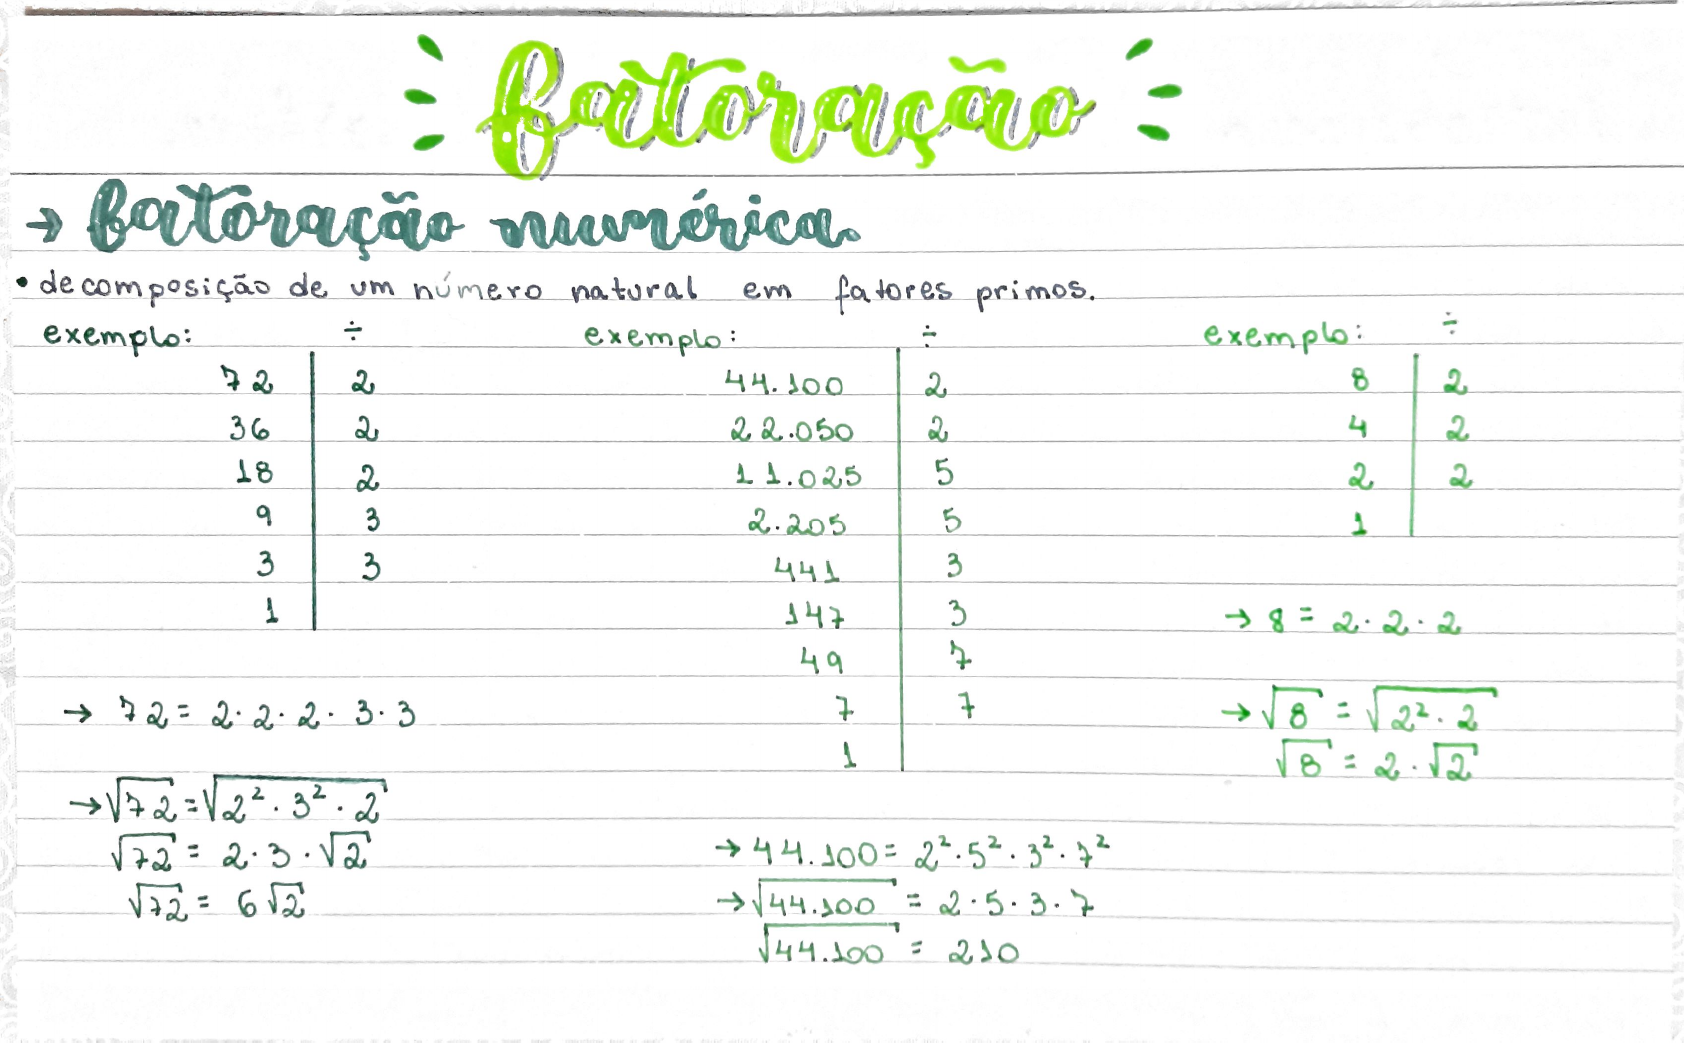 fatoração
→ fatoração numérica
• decomposição de um número natural em fatores primos.
exemplo: ÷
72 | 2
36 | 2
18 | 2
9 | 3
3 | 3
1 |
→ 72 = 2 · 2 · 2 · 3 · 3
→ √72 = √2² · 3² · 2
√72 = 2 · 3 · √2
√72 = 6√2
exemplo: ÷
44.100 | 2
22.050 | 2
11.025 | 5
2.205 | 5
441 | 3
147 | 3
49 | 7
7 | 7
1 |
→ 44.100 = 2² · 5² · 3² · 7²
→ √44.100 = 2 · 5 · 3 · 7
√44.100 = 210
exemplo: ÷
8 | 2
4 | 2
2 | 2
1 |
→ 8 = 2 · 2 · 2
→ √8 = √2² · 2
√8 = 2 · √2